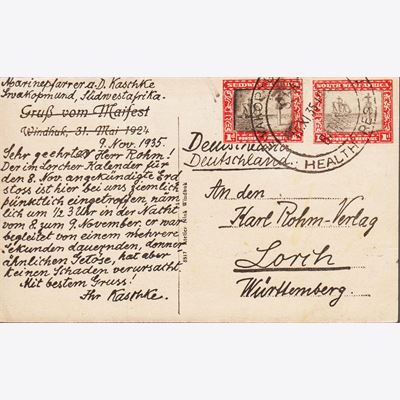 Marinepfarrer a.D. Kaschke
Swakopmund, Südwestafrika.
Gruß vom Maifest
Windhuk, 31. Mai 1924
9. Nov. 1935.
Sehr geehrter Herr Rohm!
Der im Lorcher Kalender für
den 8. Nov. angekündigte Erd
stoss ist hier bei uns ziemlich
pünktlich eingetroffen, näm
lich um ½ 3 Uhr in der Nacht
vom 8. zum 9. November. er war
begleitet von einem mehrere
Sekunden dauernden, donner
ähnlichen Getöse, hat aber
keinen Schaden verursacht.
Mit bestem Gruss!
Ihr Kaschke.
Atelier Windhuk
SOUTH WEST AFRICA
1d 1d
HEALTH RESORT
Deutschland
Deutschland.
An den
Karl Rohm-Verlag
Lorch
Württemberg.